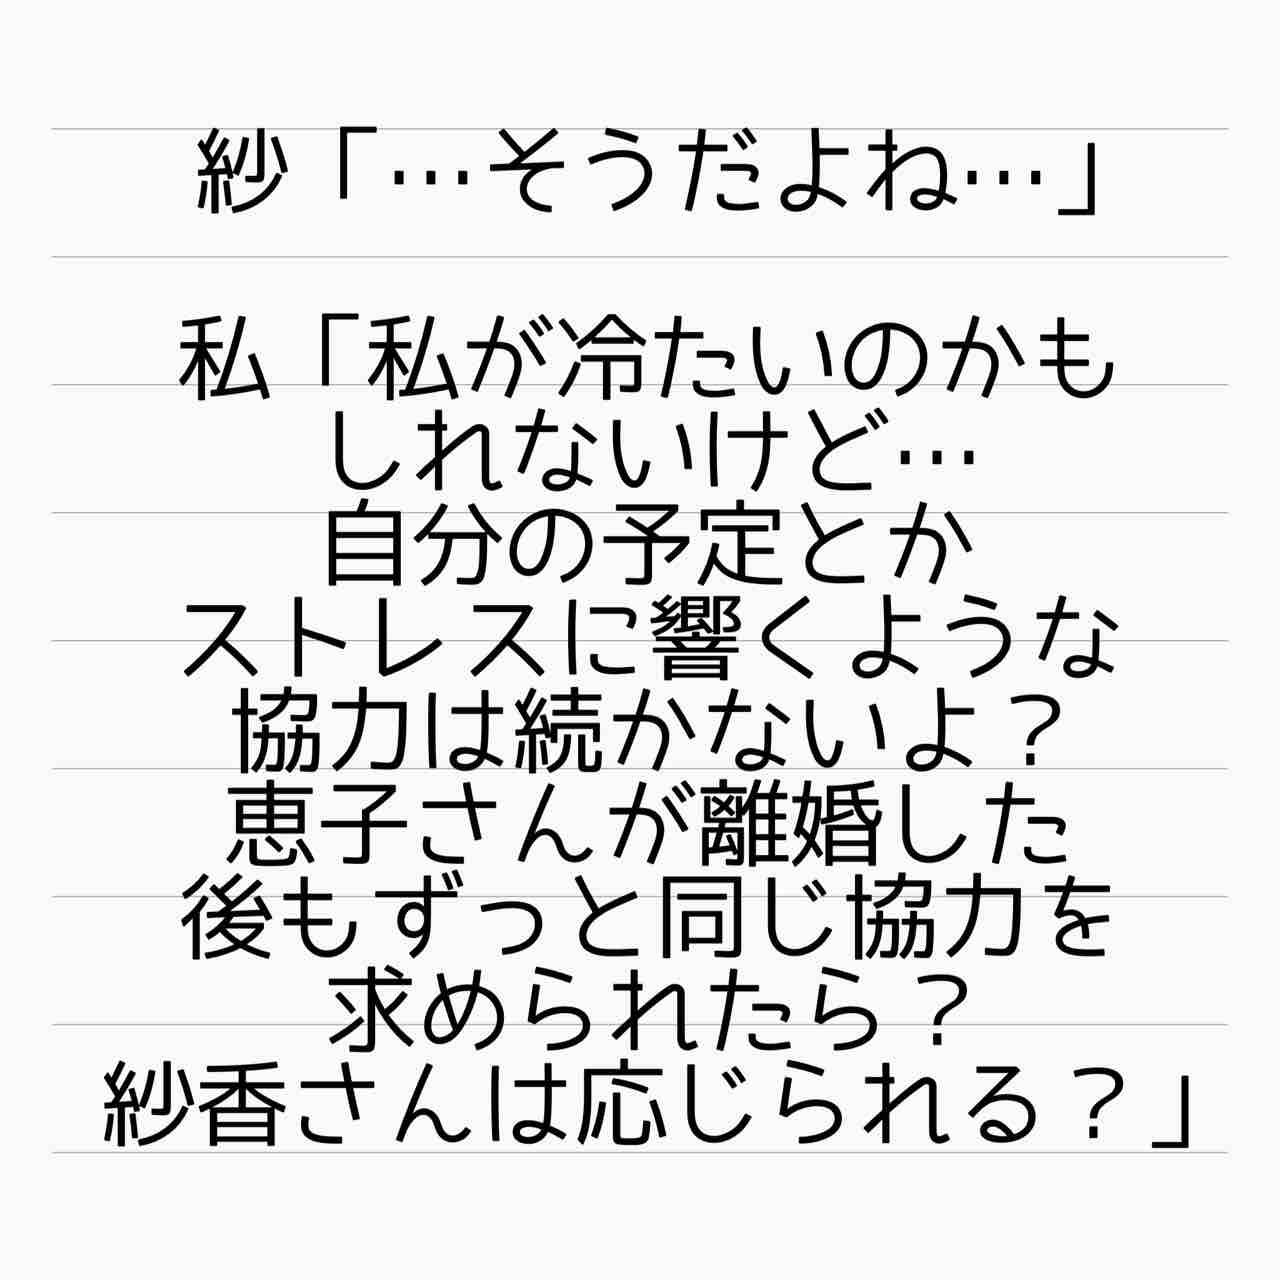 紗「…そうだよね…」
私「私が冷たいのかも
しれないけど…
自分の予定とか
ストレスに響くような
協力は続かないよ？
恵子さんが離婚した
後もずっと同じ協力を
求められたら？
紗香さんは応じられる？」